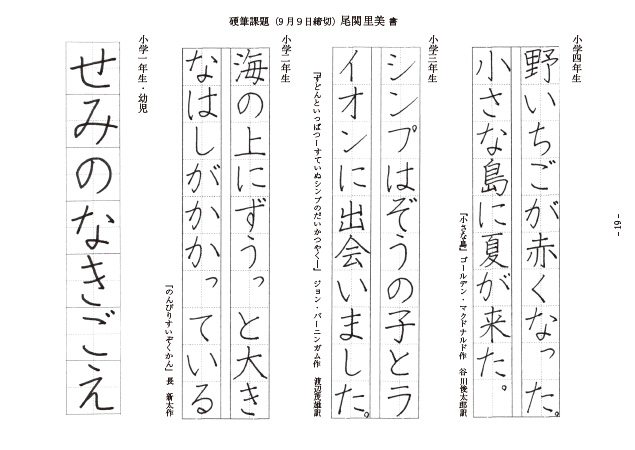 硬筆課題（9月9日締切）尾関里美 書
小学四年生
野いちごが赤くなった。
小さな島に夏が来た。
『小さな島』 ゴールデン・マクドナルド作 谷川俊太郎訳
小学三年生
シンプはぞうの子とラ
イオンに出会いました。
『ずどんといっぱつーすていぬシンプのだいかつやくー』 ジョン・バーニンガム作 渡辺茂雄訳
小学二年生
海の上にずうっと大き
なはしがかかっている
『のんびりすいぞくかん』 長 新太作
小学一年生・幼児
せみのなきごえ
- 19 -